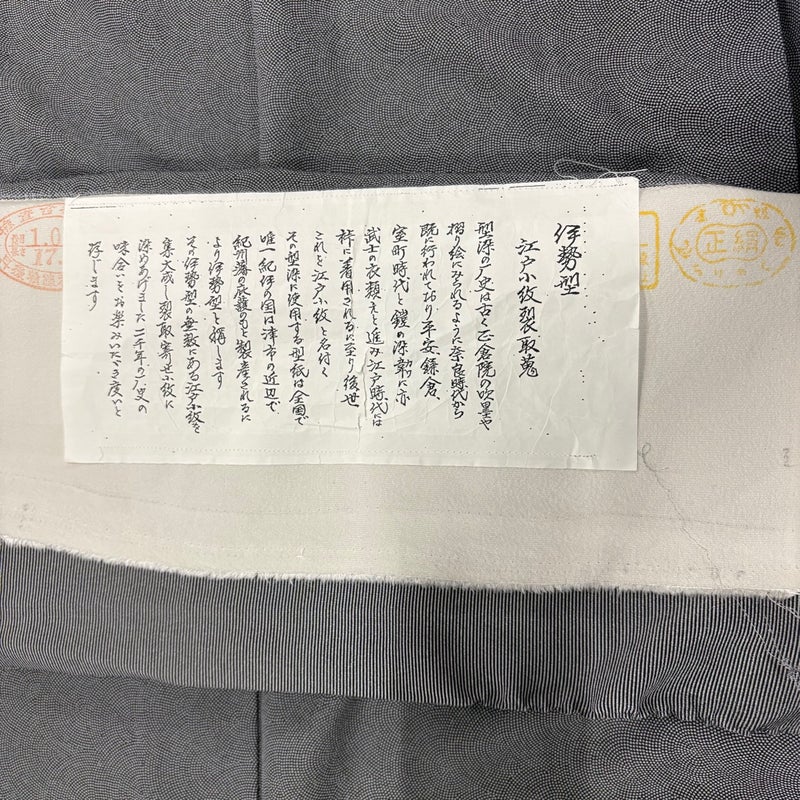 伊勢型
江戸小紋裂取蒐
型染の歴史は古く正倉院の吹墨や
摺り絵にみられるように奈良時代から
既に行われており平安、鎌倉、
室町時代と鎧の染韋に亦
武士の衣類えと進み江戸時代には
裃に着用されるに至り後世
これを江戸小紋と名付く
その型染に使用する型紙は全国で
唯一紀伊の国は津市の近辺で
紀州藩の庇護のもと製産されるに
より伊勢型と稱します
その伊勢型の無数にある江戸小紋を
集大成し裂取寄せ小紋に
染めあげました二千年の歴史の
味合いをお楽みいたゞき度いと
存じます
1.0
17.
正絹